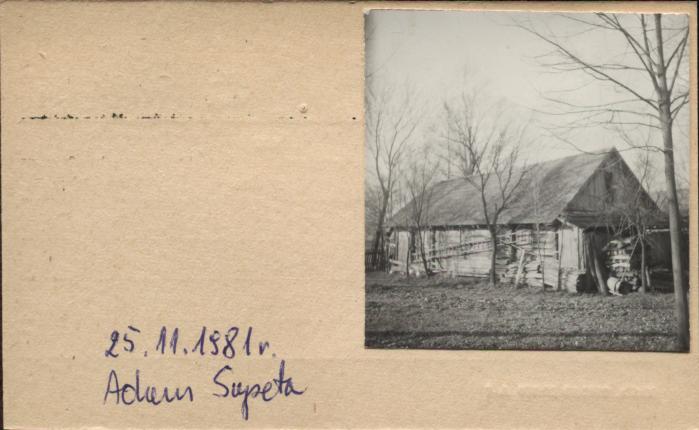 25.11.1981r.
Adam Supeta